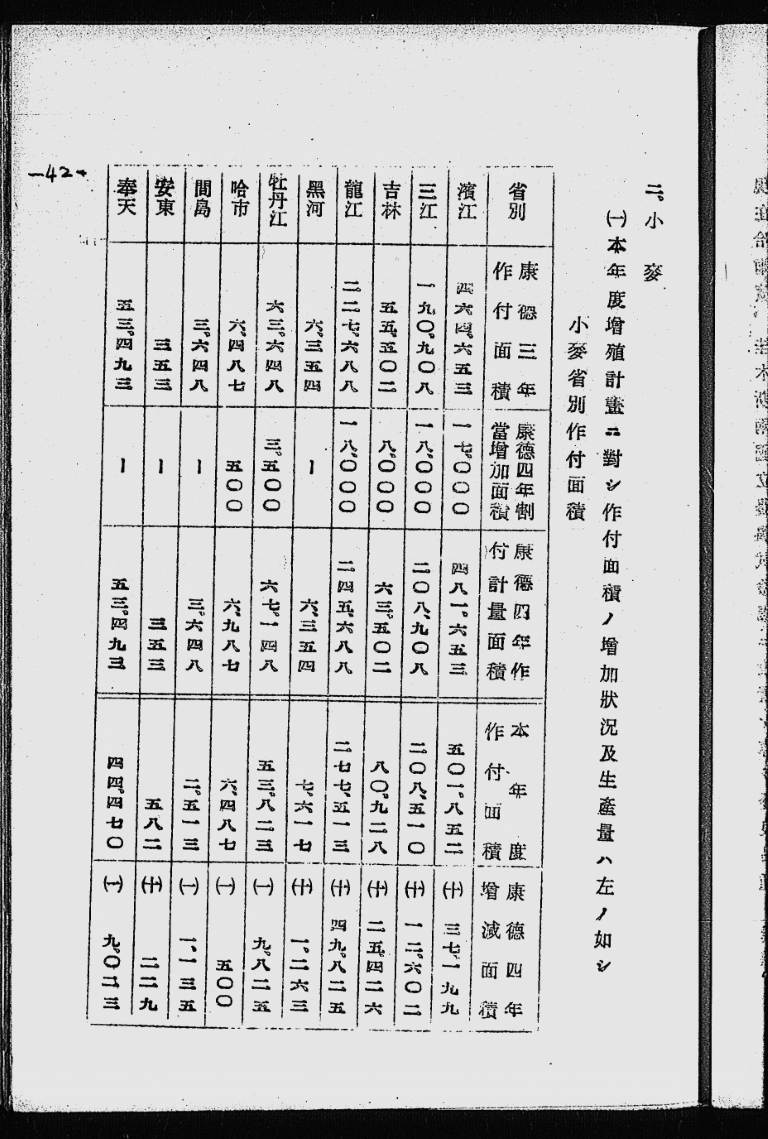 二、小麥
㈠本年度增殖計畫ニ對シ作付面積ノ增加狀況及生產量ハ左ノ如シ
小麥省別作付面積
省別 康德三年作付面積 康德四年割當增加面積 康德四年作付計量面積 本年度作付面積 康德四年增減面積
濱江 四六四、六五三 一七、〇〇〇 四八一、六五三 五〇一、八五二 (十) 三七、一九九
三江 一九〇、九〇八 一八、〇〇〇 二〇八、九〇八 二〇八、五一〇 (十) 一二、六〇二
吉林 五五、五〇二 八、〇〇〇 六三、五〇二 八〇、九二八 (十) 二五、四二六
龍江 二二七、六八八 一八、〇〇〇 二四五、六八八 二七七、五一三 (十) 四九、八二五
黑河 六、三五四 ー 六、三五四 七、六一七 (十) 一、二六三
牡丹江 六三、六四八 三、五〇〇 六七、一四八 五三、八二三 (一) 九、八二五
哈市 六、四八七 五〇〇 六、九八七 六、四八七 (一) 五〇〇
間島 三、六四八 ー 三、六四八 二、五一三 (一) 一、一三五
安東 三五三 ー 三五三 五八二 (十) 二二九
奉天 五三、四九三 ー 五三、四九三 四四、四七〇 (一) 九、〇二三
—42—